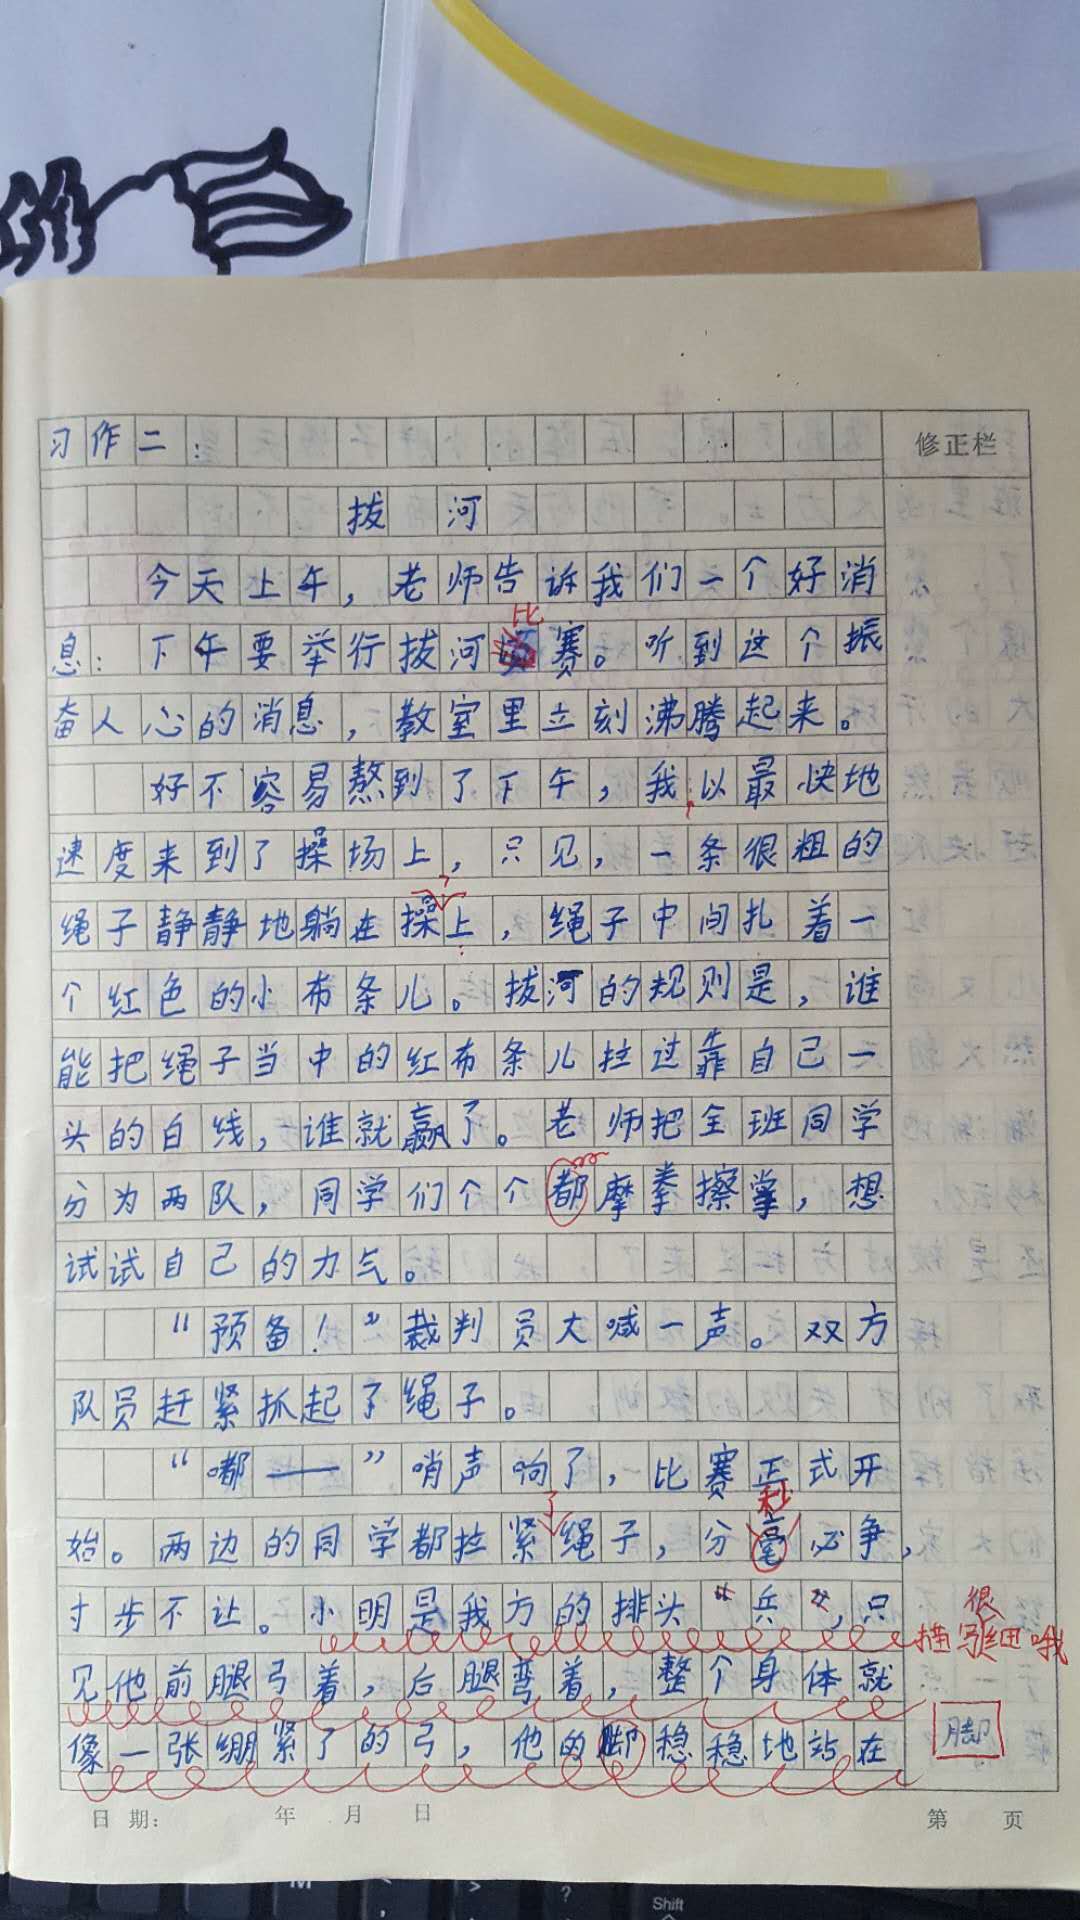 习作二：
修正栏
拔河
今天上午，老师告诉我们一个好消
比
息：下午要举行拔河赛。听到这个振
奋人心的消息，教室里立刻沸腾起来。
好不容易熬到了下午，我以最快地
速度来到了操场上，只见，一条很粗的
绳子静静地躺在操上，绳子中间扎着一
个红色的小布条儿。拔河的规则是，谁
能把绳子当中的红布条儿拉过靠自己一
头的白线，谁就赢了。老师把全班同学
分为两队，同学们个个都摩拳擦掌，想
试试自己的力气。
“预备！”裁判员大喊一声。双方
队员赶紧抓起了绳子。
“嘟——”哨声响了，比赛正式开
了 秒
始。两边的同学都拉紧绳子，分毫必争，
寸步不让。小明是我方的排头“兵”，只
描写很细哦
见他前腿弓着，后腿弯着，整个身体就
像一张绷紧了的弓，他的脚稳稳地站在
脚
日期： 年 月 日
第 页
M
< > ?
Shift